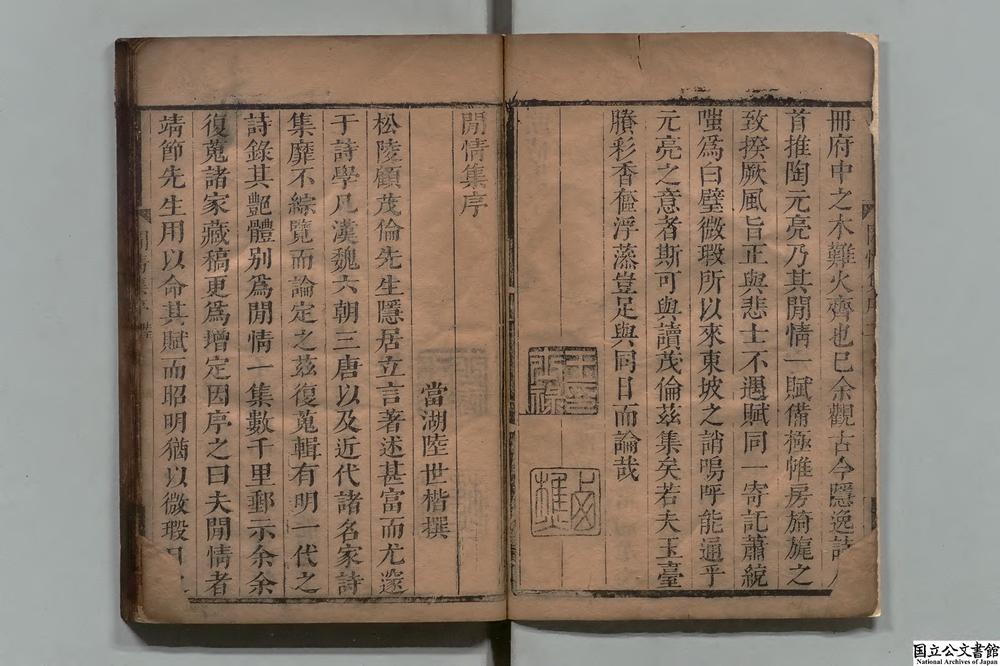 冊府中之木難火齊也已余觀古今隱逸詩人
首推陶元亮乃其閒情一賦備極帷房旖旎之
致揆厥風旨正與悲士不遇賦同一寄託蕭統
嗤爲白璧微瑕所以來東坡之誚嗚呼能通乎
元亮之意者斯可與讀茂倫茲集矣若夫玉臺
賸彩香奩浮藻豈足與同日而論哉
閒情集序
當湖陸世楷撰
松陵顧茂倫先生隱居立言著述甚富而尤邃
于詩學凡漢魏六朝三唐以及近代諸名家詩
集靡不綜覽而論定之茲復蒐輯有明一代之
詩錄其艷體別爲閒情一集數千里郵示余余
復蒐諸家藏稿更爲增定因序之曰夫閒情者
靖節先生用以命其賦而昭明猶以微瑕目之
閒情集序
国立公文書館
National Archives of Japan